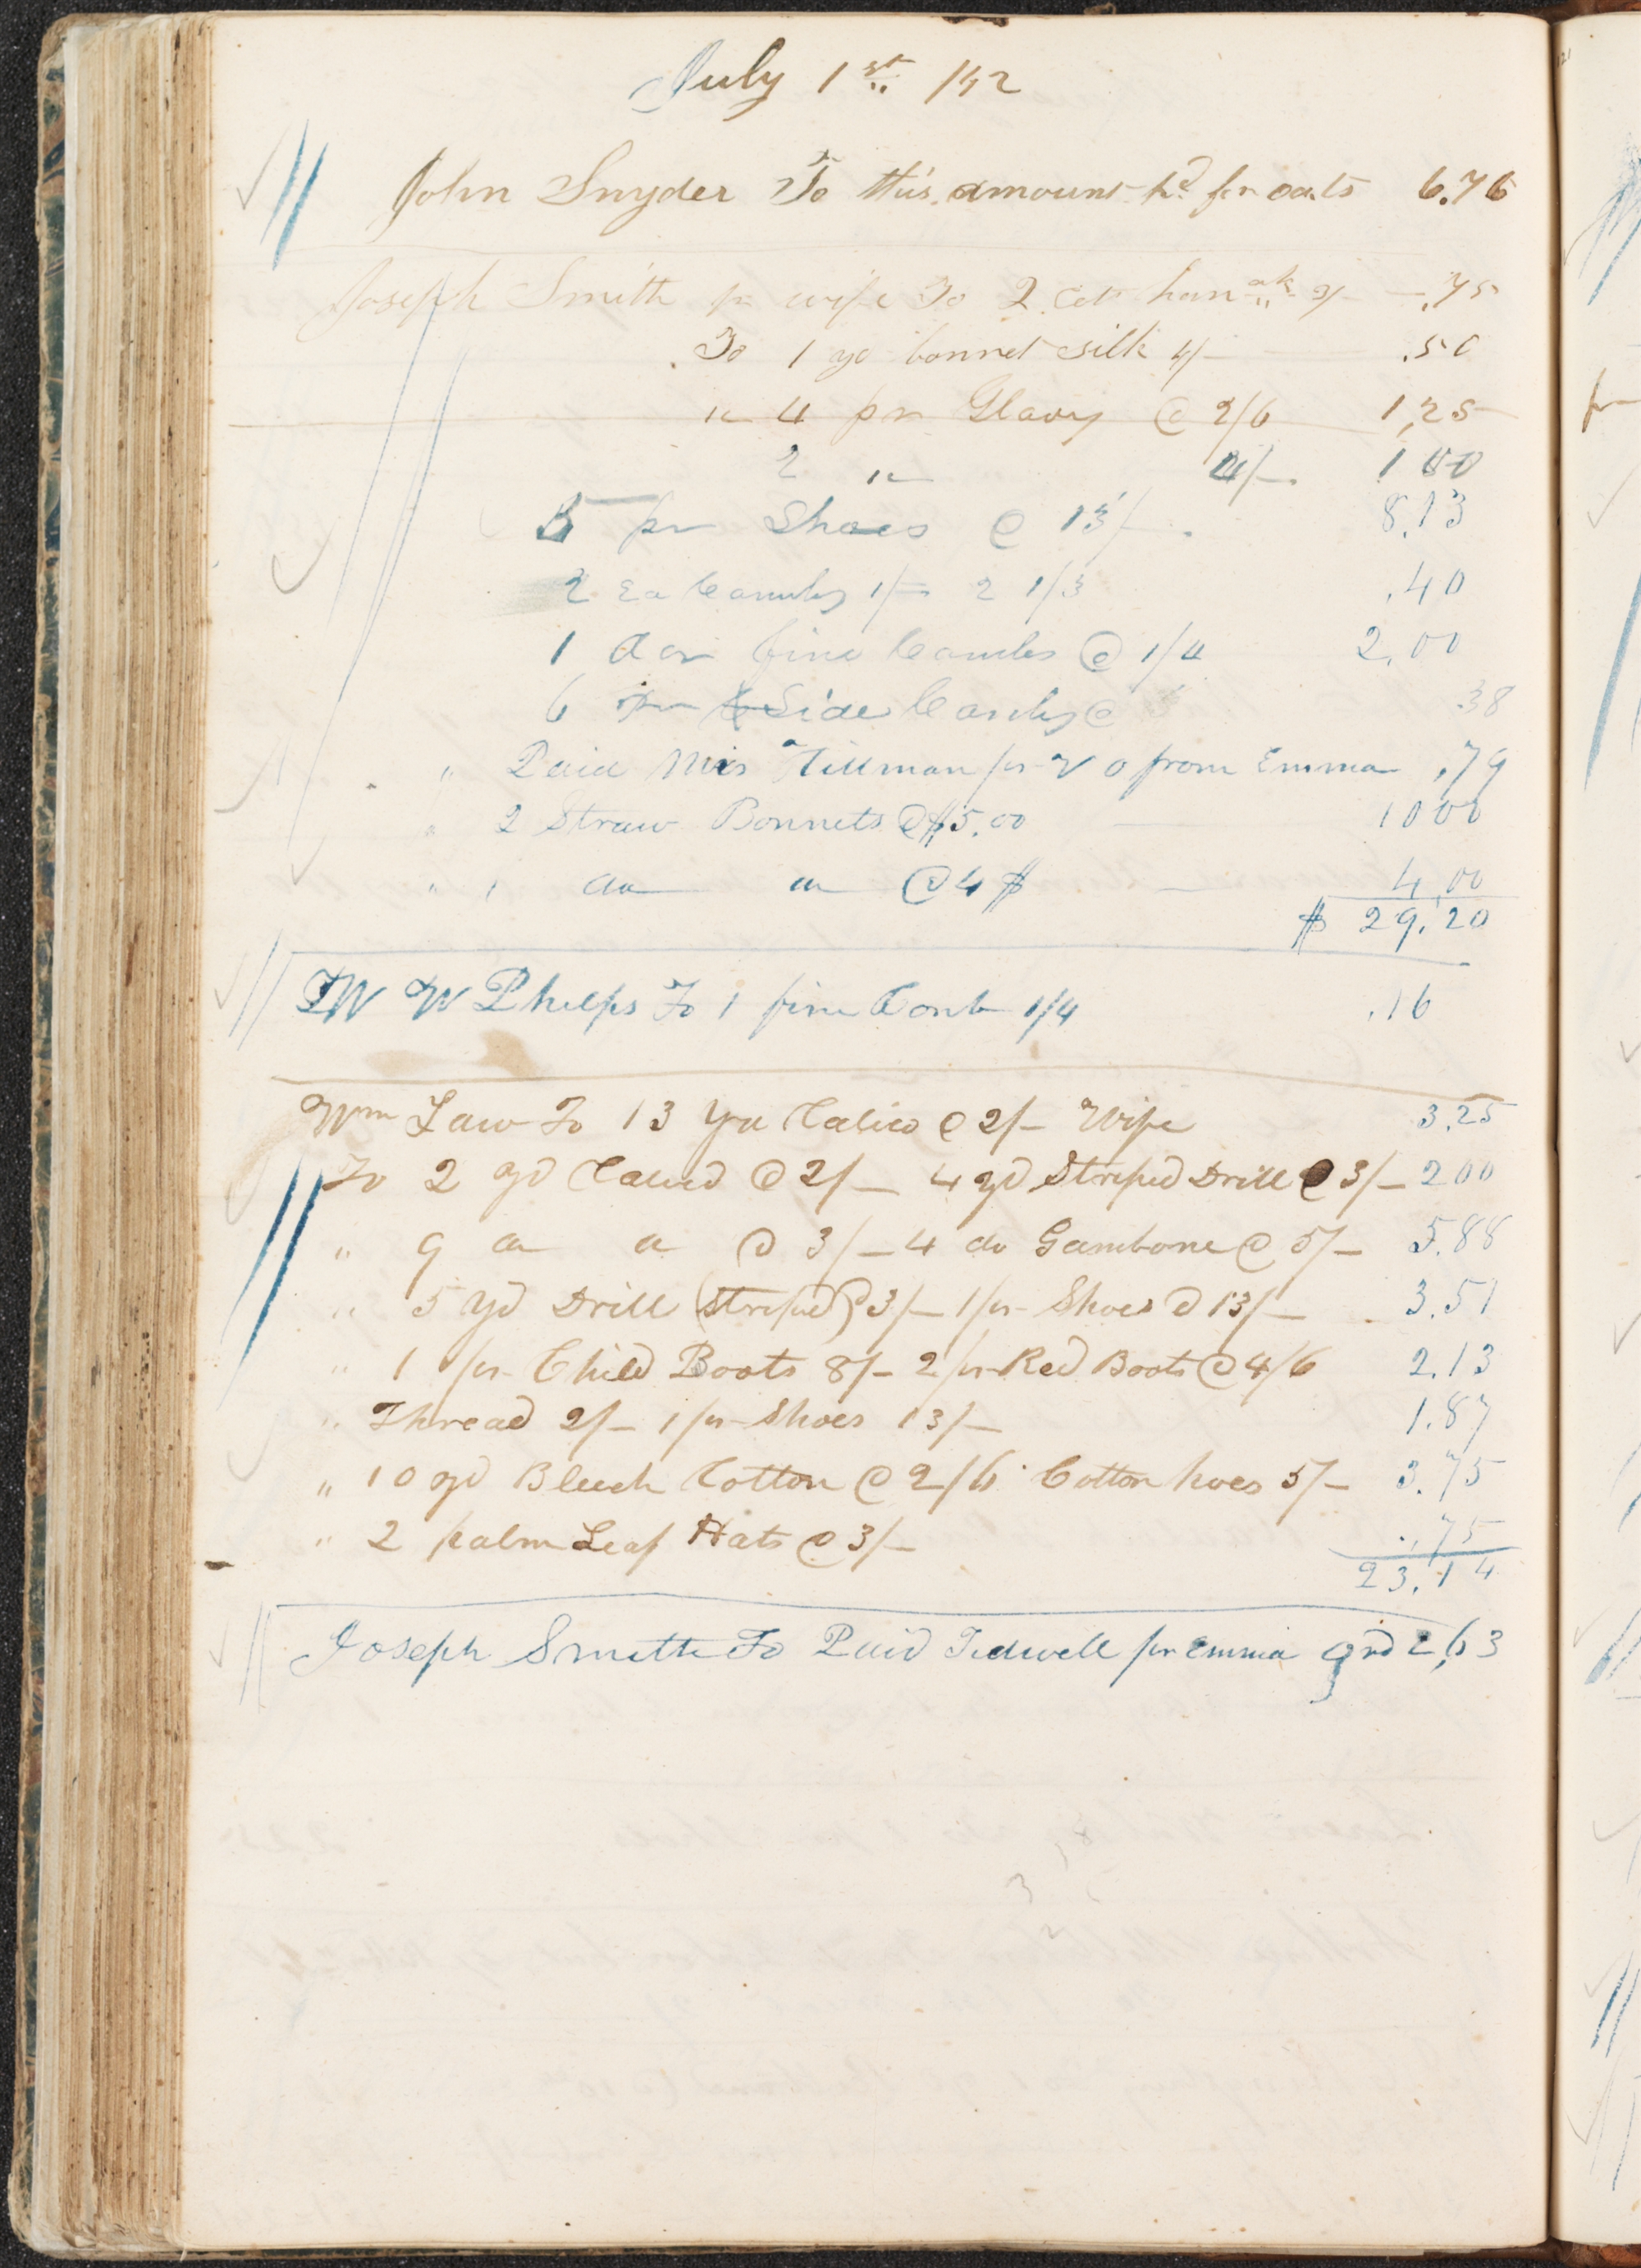 July 1st 1842
John Snyder To this amount pd for oats 6.76
Joseph Smith pr wife To 2 Cot hank 3/- .75
To 1 yd bonnet silk 4/- .50
" 4 pr Glovs @ 2/6 1,25
2 " 4/- 1 00
5 pr Shoes @ 13/- 8.13
2 Ea Combs 1/- 2 1/3 .40
1 doz fine Combs @ 1/4 2,00
6 pr Side Combs @ .38
" Paid Mrs Tillman pr V o from Emma .79
" 2 Straw Bonnets @ $5.00 10 00
" 1 do do @ 4 $ 4,00
$ 29.20
W W Phelps To 1 fine Comb 1/4 .16
Wm Law To 13 Yd Calico @ 2/- Wife 3.25
To 2 yd Calico @ 2/- 4 yd Striped Drill @ 3/- 2 00
" 9 do do @ 3/- 4 do Gambone @ 5/- 5.88
" 5 Yd Drill (Striped) @ 3/- 1 pr Shoes @ 13/- 3.51
" 1 pr Child Boots 8/- 2 pr Red Boots @ 4/6 2.13
" Thread 2/- 1 pr Shoes 13/- 1.87
" 10 yd Bleech Cotton @ 2/6 Cotton hoes 5/- 3.75
" 2 palm Leaf Hats @ 3/- .75
23.14
Joseph Smith To Paid Tidwell pr Emma 2,63